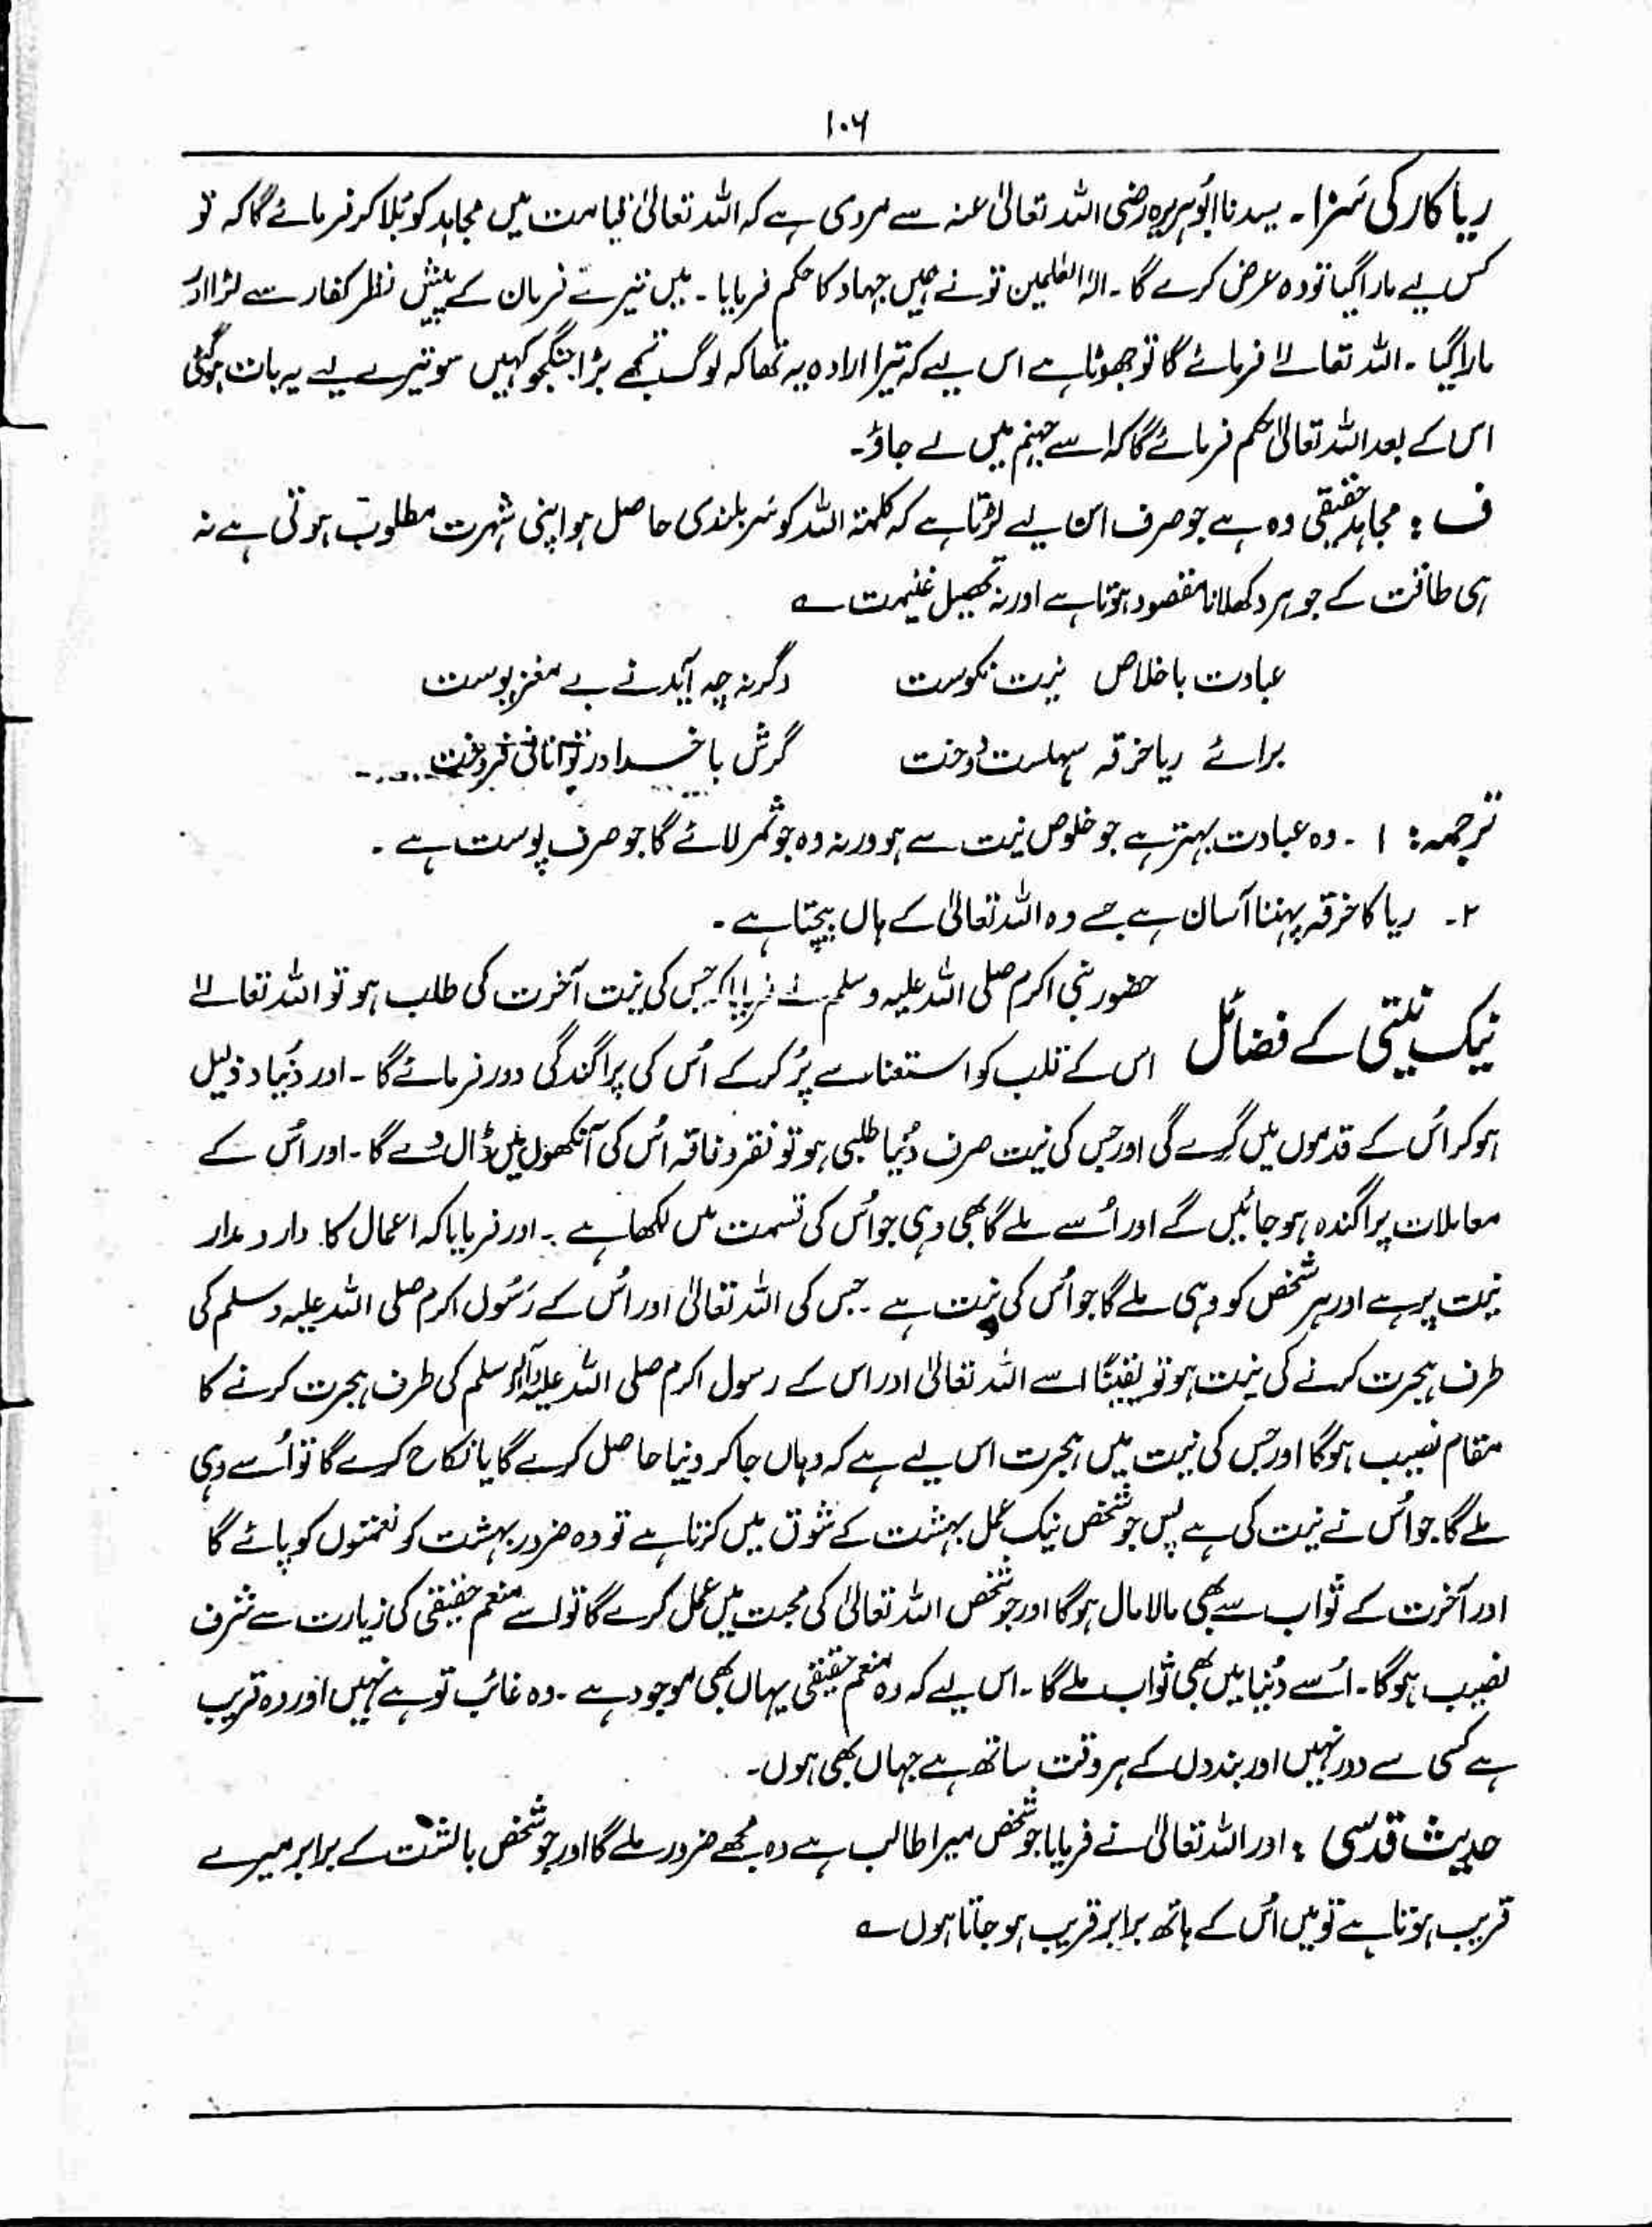 ۱۰۶
ریا کار کی سَزا ۔ سیدنا ابُوہریرہ رضی اللہ تعالیٰ عنہ سے مروی ہے کہ اللہ تعالیٰ قیامت میں مجاہد کو بُلا کر فرمائے گا کہ تو
کس لیے مارا گیا تو وہ عرض کرے گا ۔ الٰہ العٰلمین تو نے ہمیں جہاد کا حکم فرمایا ۔ میں تیرے فرمان کے پیش نظر کفار سے لڑا اور
مارا گیا ۔ اللہ تعالےٰ فرمائے گا تو جھوٹا ہے اس لیے کہ تیرا ارادہ یہ تھا کہ لوگ تجھے بڑا جنگجو کہیں سو تیرے لیے یہ بات ہوگئی
اس کے بعد اللہ تعالیٰ حکم فرمائے گا کہ اسے جہنم میں لے جاؤ۔
ف : مجاہد حقیقی وہ ہے جو صرف اس لیے لڑتا ہے کہ کلمۃ اللہ کو سَر بلندی حاصل ہو اپنی شہرت مطلوب ہوتی ہے نہ
ہی طاقت کے جوہر دکھلانا مقصود ہوتا ہے اور نہ تحصیل غنیمت ؎
عبادت باخلاص نیت نکوست وگرنہ چہ آید نے بے مغز پوست
برائے ریا خرقہ سہلست دوخت گرش با خدا در توانی فروخت
ترجمہ : ۱ ۔ وہ عبادت بہتر ہے جو خلوص نیت سے ہو ورنہ وہ جو ثمر لائے گا جو صرف پوست ہے ۔
۲ ۔ ریا کا خرقہ پہننا آسان ہے جسے وہ اللہ تعالیٰ کے ہاں بیچتا ہے ۔
نیک نیتی کے فضائل حضور نبی اکرم صلی اللہ علیہ وسلم نے فرمایا کہ جس کی نیت آخرت کی طلب ہو تو اللہ تعالےٰ
اس کے قلب کو استغناء سے پُر کرکے اُس کی پراگندگی دور فرمائے گا ۔ اور دُنیا ذلیل
ہو کر اُس کے قدموں میں گرے گی اور جس کی نیت صرف دُنیا طلبی ہو تو فقر و فاقہ اُس کی آنکھوں میں ڈال دے گا ۔ اور اُس کے
معاملات پراگندہ ہو جائیں گے اور اُسے ملے گا بھی وہی جو اُس کی قسمت میں لکھا ہے ۔ اور فرمایا کہ اعمال کا دار و مدار
نیت پر ہے اور ہر شخص کو وہی ملے گا جو اُس کی نیت ہے ۔ جس کی اللہ تعالیٰ اور اُس کے رَسُول اکرم صلی اللہ علیہ وسلم کی
طرف ہجرت کرنے کی نیت ہو تو یقیناً اسے اللہ تعالیٰ اور اس کے رسول اکرم صلی اللہ علیہ وآلہٖ وسلم کی طرف ہجرت کرنے کا
مقام نصیب ہوگا اور جس کی نیت میں ہجرت اس لیے ہے کہ وہاں جا کر دنیا حاصل کرے گا یا نکاح کرے گا تو اُسے وہی
ملے گا جو اُس نے نیت کی ہے پس جو شخص نیک عمل بہشت کے شوق میں کرتا ہے تو وہ ضرور بہشت کو نعمتوں کو پائے گا
اور آخرت کے ثواب سے بھی مالا مال ہوگا اور جو شخص اللہ تعالیٰ کی محبت میں عمل کرے گا تو اسے منعم حقیقی کی زیارت سے شرف
نصیب ہوگا ۔ اُسے دُنیا میں بھی ثواب ملے گا ۔ اس لیے کہ وہ منعم حقیقی یہاں بھی موجود ہے ۔ وہ غائب تو ہے نہیں اور وہ قریب
ہے کسی سے دور نہیں اور بندوں کے ہر وقت ساتھ ہے جہاں بھی ہوں ۔
حدیث قدسی : اور اللہ تعالیٰ نے فرمایا جو شخص میرا طالب ہے وہ مجھے ضرور ملے گا اور جو شخص بالشت کے برابر میرے
قریب ہوتا ہے تو میں اُس کے ہاتھ برابر قریب ہو جاتا ہوں ؎